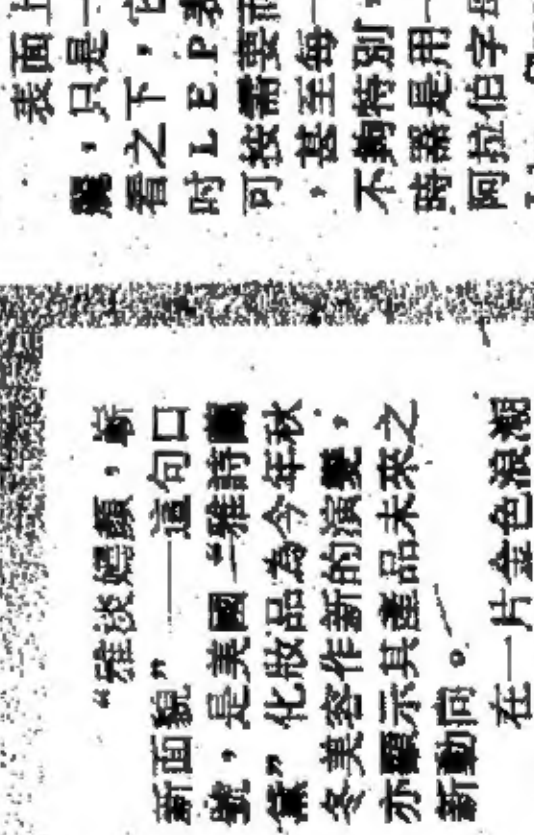 “雅淡嫣顏，嶄
新面貌”——這句口
號，是美國“雅詩蘭
黛”化妝品為今年秋
冬美容作新的演變，
亦顯示其產品未來之
新動向。
在一片金色浪潮
表面上
，只是一
看之下，它
吋LEP表
可按需要而
，甚至每一
不夠特別，
時器是用一
阿拉伯字母